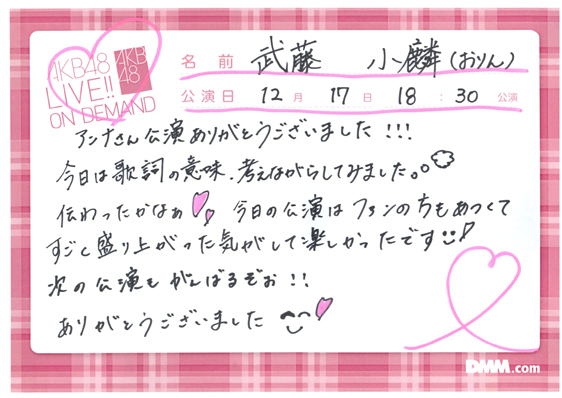 AKB48
LIVE!!
ON DEMAND
AKB
48
名前 武藤 小麟(おりん)
公演日 12月 17日 18:30 公演
アンナさん公演ありがとうございました!!!
今日は歌詞の意味、考えながらしてみました。
伝わったかなぁ 今日の公演はファンの方もあつくて
すごく盛り上がった気がして楽しかったです!
次の公演も がんばるぞぉ!!
ありがとうございました
DMM.com